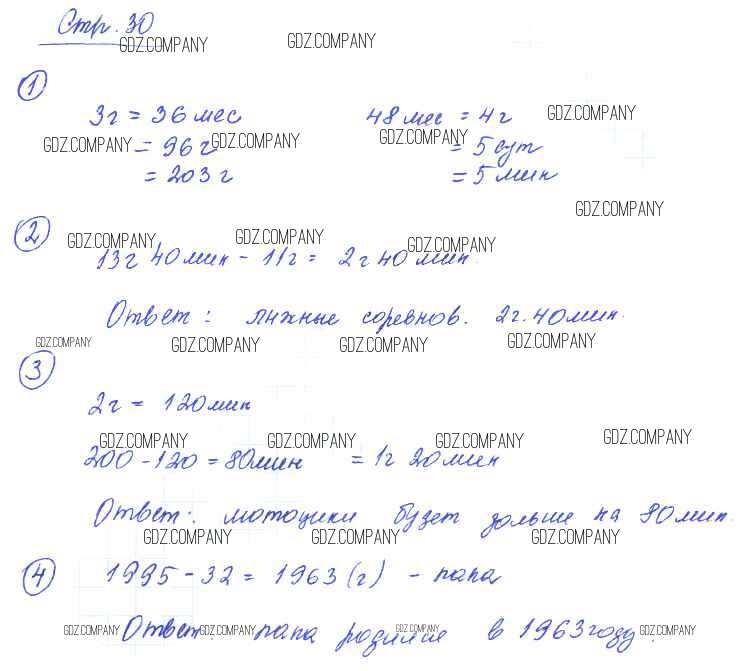 Стр. 30
GDZ.COMPANY GDZ.COMPANY
1
3г = 36 мес 48 мес = 4г GDZ.COMPANY
GDZ.COMPANY = 96 г GDZ.COMPANY GDZ.COMPANY = 5 сут
= 203 г = 5 мин
GDZ.COMPANY
2 GDZ.COMPANY GDZ.COMPANY GDZ.COMPANY
13г 40мин - 11г = 2г 40 мин.
Ответ: лыжные соревнов. 2г. 40мин.
GDZ.COMPANY GDZ.COMPANY GDZ.COMPANY GDZ.COMPANY
3
2г = 120мин
GDZ.COMPANY GDZ.COMPANY GDZ.COMPANY GDZ.COMPANY
200 - 120 = 80мин = 1г 20мин
Ответ: мотоцикл будет дольше на 80мин.
GDZ.COMPANY GDZ.COMPANY GDZ.COMPANY
4 1995 - 32 = 1963 (г) - папа
GDZ.COMPANY Ответ: GDZ.COMPANY папа родился GDZ.COMPANY в 1963 году. GDZ.COMPANY